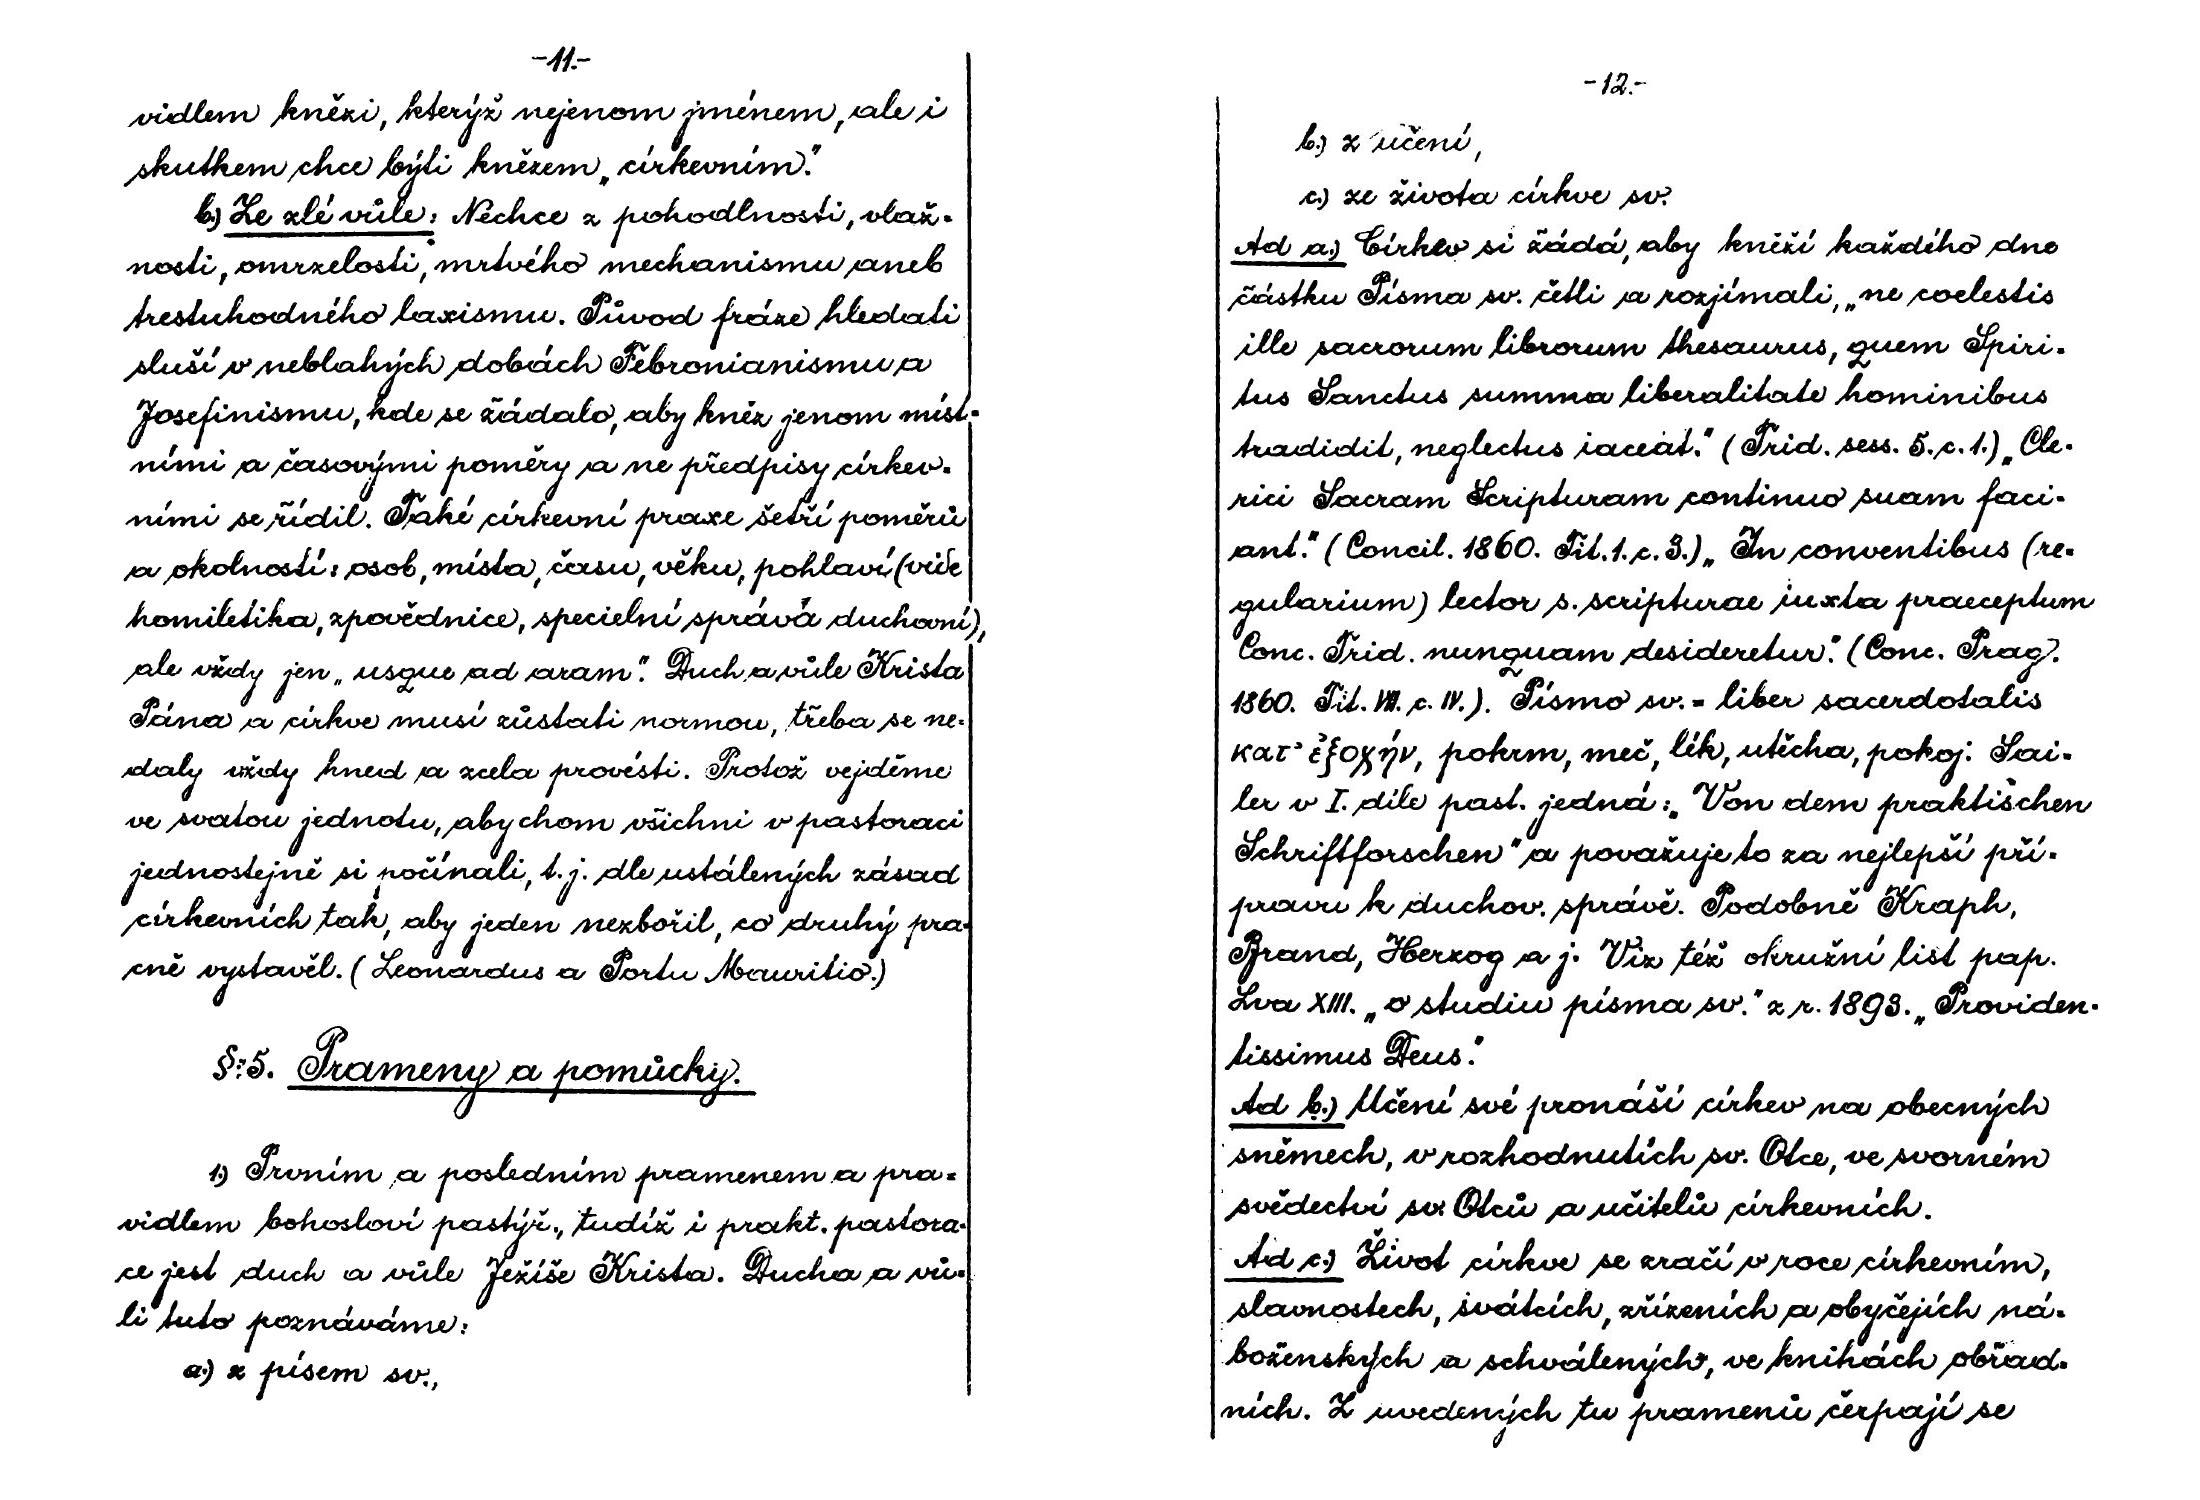 -11.-
vidlem knězi, kterýž nejenom jménem, ale i
skutkem chce býti knězem „církevním.“
b.) Ze zlé vůle: Nechce z pohodlnosti, vlaž-
nosti, omrzelosti, mrtvého mechanismu aneb
trestuhodného laxismu. Původ fráze hledati
sluší v neblahých dobách Febronianismu a
Josefinismu, kde se žádalo, aby kněz jenom míst-
ními a časovými poměry a ne předpisy církev-
ními se řídil. Také církevní praxe šetří poměrů
a okolností: osob, místa, času, věku, pohlaví (vide
homiletika, zpovědnice, specielní správa duchovní),
ale vždy jen „usque ad aram“. Duch a vůle Krista
Pána a církve musí zůstati normou, třeba se ne-
daly vždy hned a zcela provésti. Protož vejděme
ve svatou jednotu, abychom všichni v pastoraci
jednostejně si počínali, t. j. dle ustálených zásad
církevních tak, aby jeden nezbořil, co druhý pra-
cně vystavěl. (Leonardus a Portu Mauritio.)
§: 5. Prameny a pomůcky.
1.) Prvním a posledním pramenem a pra-
vidlem bohosloví pastýř., tudíž i prakt. pastora-
ce jest duch a vůle Ježíše Krista. Ducha a vů-
li tuto poznáváme:
a.) z písem sv.,
-12.-
b.) z učení,
c.) ze života církve sv.
Ad a.) Církev si žádá, aby kněží každého dne
částku Písma sv. četli a rozjímali, „ne coelestis
ille sacrorum librorum thesaurus, quem Spiri-
tus Sanctus summa liberalitate hominibus
tradidit, neglectus iaceat.“ (Trid. sess. 5. c. 1.) „Cle-
rici Sacram Scripturam continuo suam faci-
ant.“ (Concil. 1860. Tit. 1. c. 3.) „In conventibus (re-
gularium) lector s. scripturae iuxta praeceptum
Conc. Trid. nunquam desideretur“. (Conc. Prag.
1860. Tit. VII. c. IV.). Písmo sv. = liber sacerdotalis
κατ᾽ ἐξοχήν, pokrm, meč, lék, útěcha, pokoj. Sai-
ler v I. díle past. jedná: „Von dem praktischen
Schriftforschen“ a považuje to za nejlepší pří-
pravu k duchov. správě. Podobně Kraph,
Brand, Herzog a j. Viz též okružní list pap.
Lva XIII. „o studiu písma sv.“ z r. 1893. „Providen-
tissimus Deus.“
Ad b.) Učení své pronáší církev na obecných
sněmech, v rozhodnutích sv. Otce, ve svorném
svědectví sv. Otců a učitelů církevních.
Ad c.) Život církve se zračí v roce církevním,
slavnostech, svátcích, zřízeních a obyčejích ná-
boženských a schválených, ve knihách obřad-
ních. Z uvedených tu pramenů čerpají se